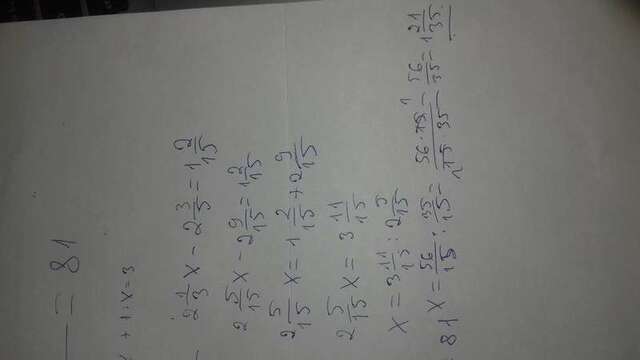 = 81
x + 1 : x = 3
2 1/3 x - 2 3/5 = 1 2/15
2 5/15 x - 2 9/15 = 1 2/15
2 5/15 x = 1 2/15 + 2 9/15
2 5/15 x = 3 11/15
x = 3 11/15 : 2 5/15
81 x = 56/15 : 35/15 = 56·15/15·35 = 56/35 = 1 21/35